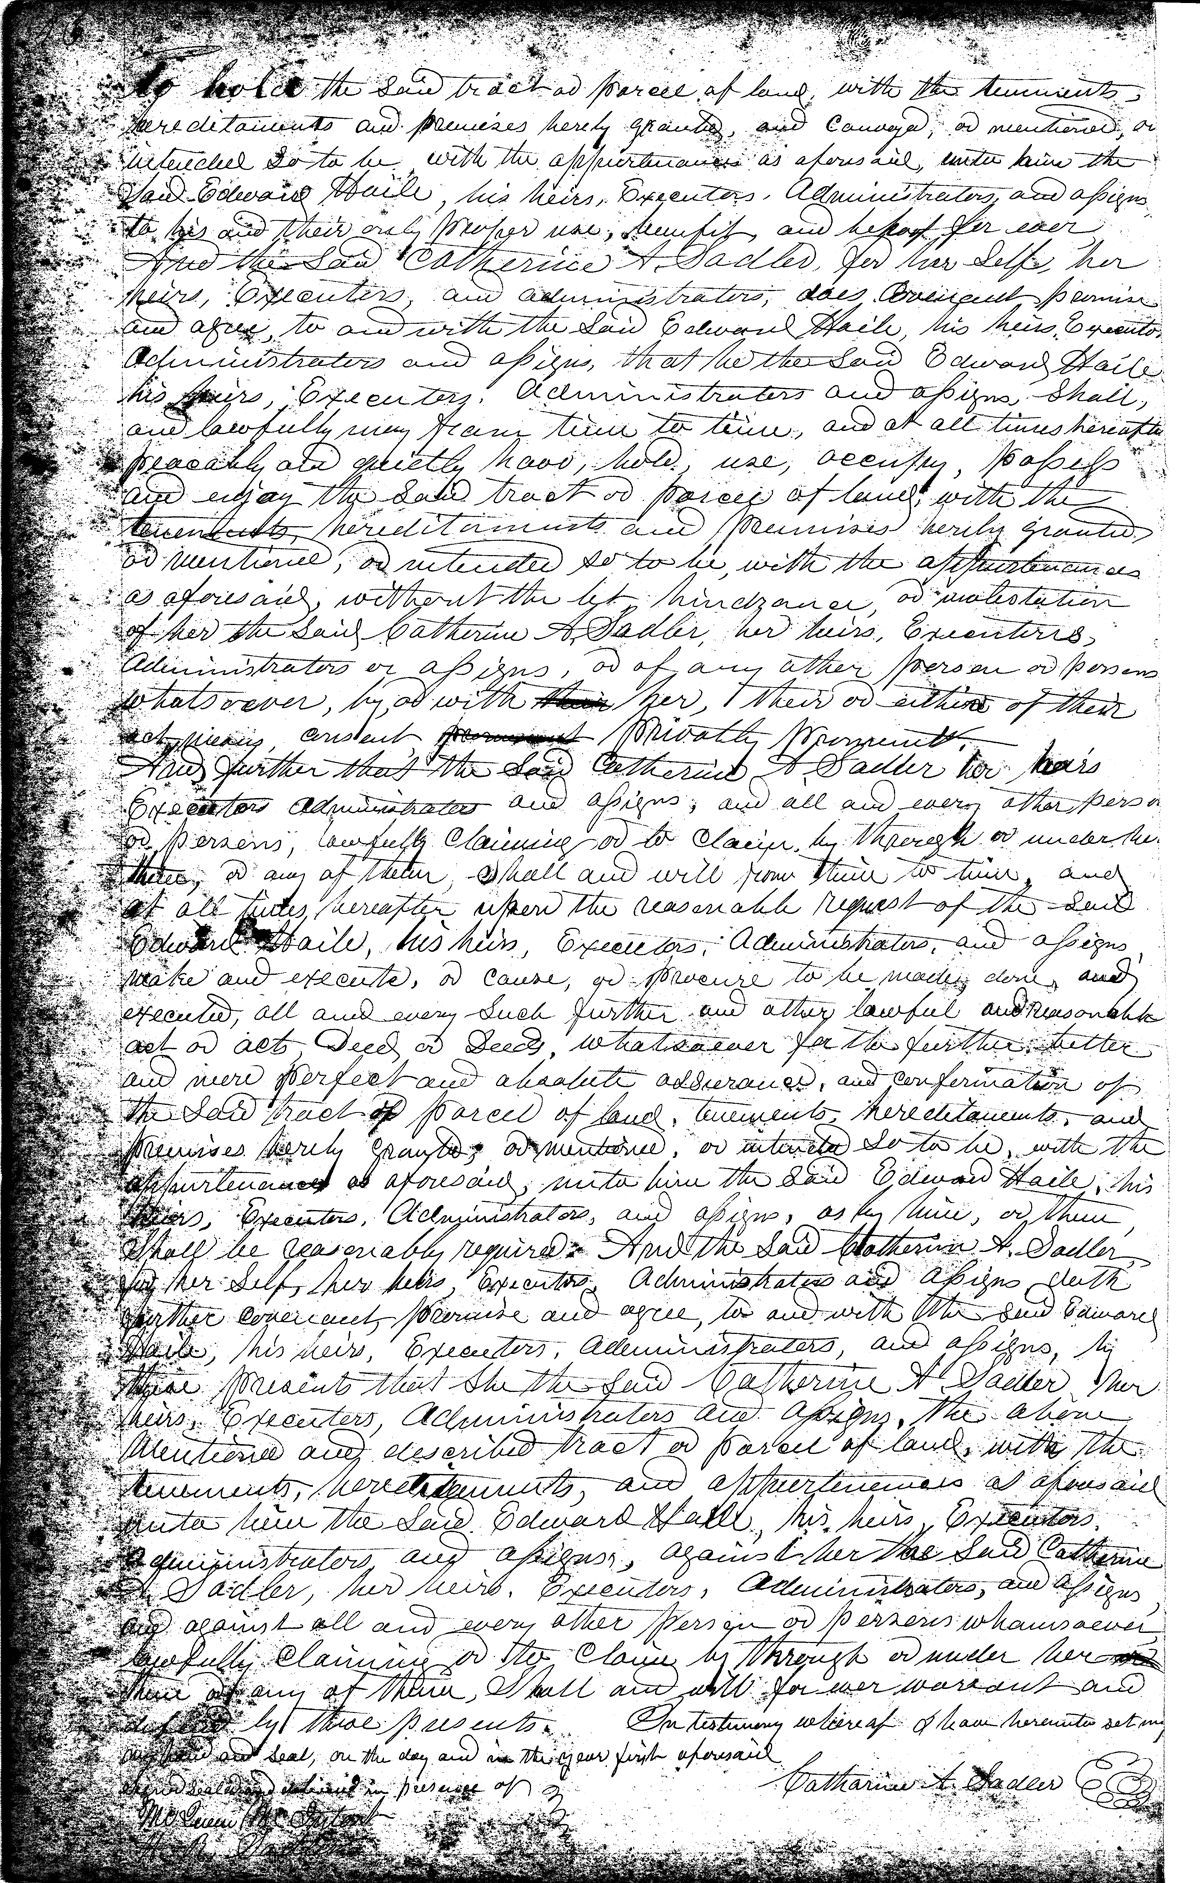 to hold the said tract or parcel of land, with the tenements,
hereditaments and premises hereby granted, and conveyed, or mentioned, or
intended so to be, with the appurtenances as aforesaid, unto him the
Said Edward Haile, his heirs, Executors, Administrators, and assigns
to his and their only proper use, benefit, and behoof for ever
And the Said Catherine A. Sadler, for her Self, her
heirs, Executors, and administrators, does, Covenant, promise
and agree, to and with the Said Edward Haile, his heirs, Executors
Administrators and assigns, that he the Said Edward Haile
his heirs, Executors, Administrators and assigns, Shall,
and lawfully may from time to time, and at all times hereafter
peacably and quietly have, hold, use, occupy, possess
and enjoy the Said tract or parcel of land, with the
tenements, hereditaments and premises hereby granted
or mentioned, or intended so to be, with the appurtenances
as aforesaid, without the let, hindrance, or molestation
of her the Said Catherine A. Sadler, her heirs, Executors,
Administrators or assigns, or of any other person or persons
whatsoever, by, or with her, their or either of their
consent privatly
And further that the Said Catherine A Sadler her heirs
Executors administrators and assigns, and all and every other person
or persons, lawfully Claiming or to Claim, by through or under her
them, or any of them, Shall and will from time to time, and
at all times, hereafter upon the reasonable request of the Said
Edward Haile, his heirs, Executors, Administrators, and assigns,
make and execute, or cause, or procure to be made, done, and
executed, all and every Such further and other lawful and reasonable
act or acts Deed or Deeds, whatsoever for the further, better
and more perfect and absolute assurance, and confermation of
the Said tract of parcel of land, tenements, hereditaments, and
premises hereby granted, or mentioned, or intended So to be, with the
appurtenances as aforesaid, unto him the Said Edward Haile, his
heirs, Executors, Administrators, and assigns, as by him, or them,
Shall be reasonably required. And the Said Catherine A. Sadler,
for her Self, her heirs, Executors, Administrators and assigns doth
further covenant, promise and agree, to and with the Said Edward
Haile, his heirs, Executors, Administrators, and assigns, by
these presents that She the Said Catherine A Sadler her
heirs, Executors, Administrators and assigns, the above
Mentioned and described tract or parcel of land, with the
tenements, hereditaments, and appurtenances as aforesaid
unto him the Said Edward Haile, his heirs, Executors,
administrators, and assigns, against her the Said Catherine
A. Sadler, her heirs, Executors, Administrators, and assigns,
and against all and every other Person or persons whomsoever
lawfully Claiming or to Claim by through or under her
them or any of them, Shall and will for ever warrant and
defend by these presents. In testimony whereof I have hereunto set my
my hand and seal, on the day and in the year first aforesaid
signed sealed and delivered in presence of
Catharine A. Sadler
McQueen McIntosh